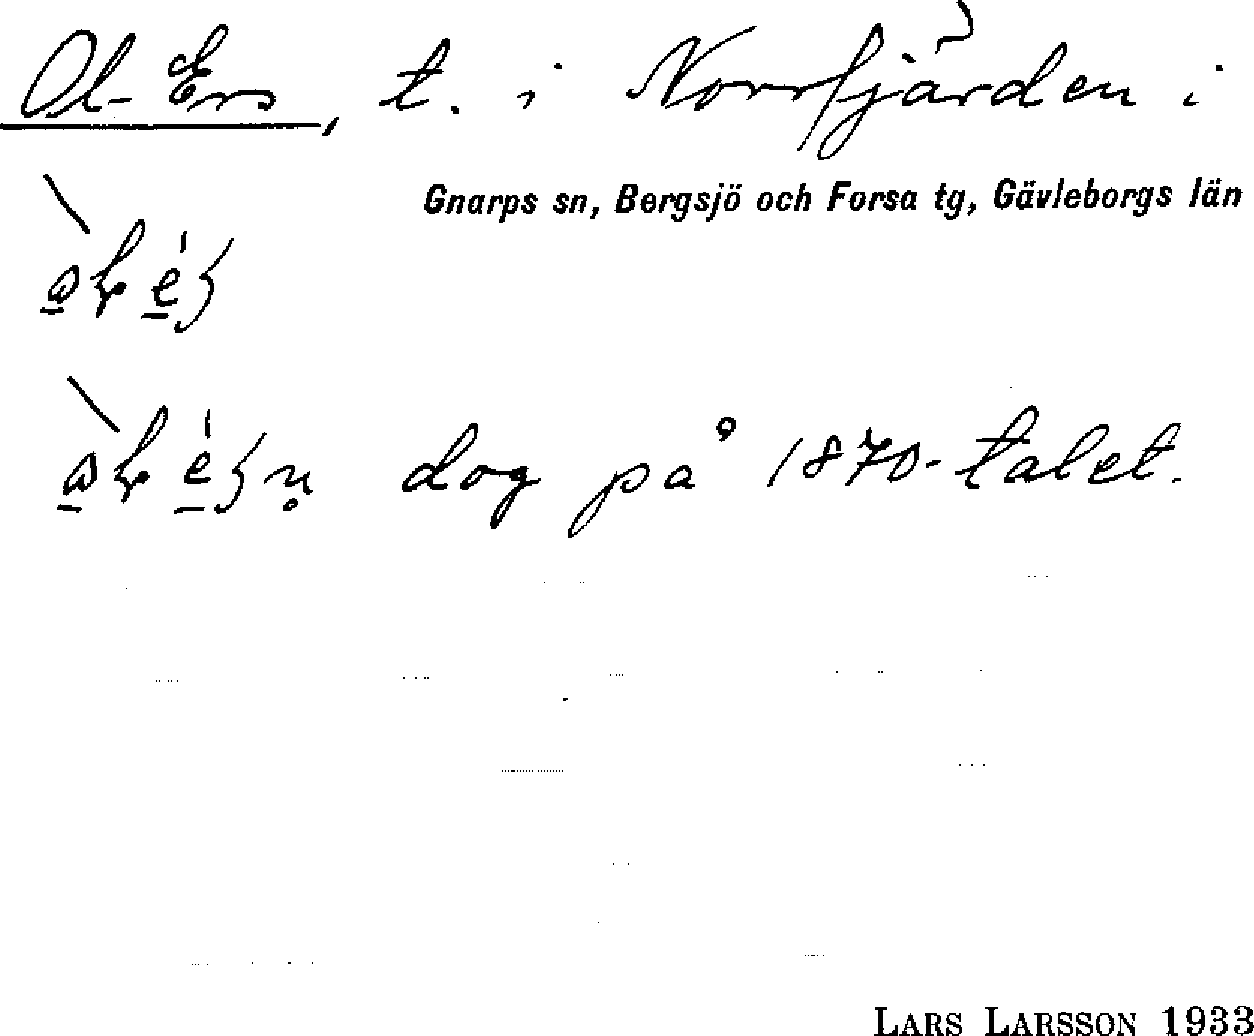 Ol-Ers, t. i Norrfjärden i
Gnarps sn, Bergsjö och Forsa tg, Gävleborgs län
dog på 1870-talet.
LARS LARSSON 1933